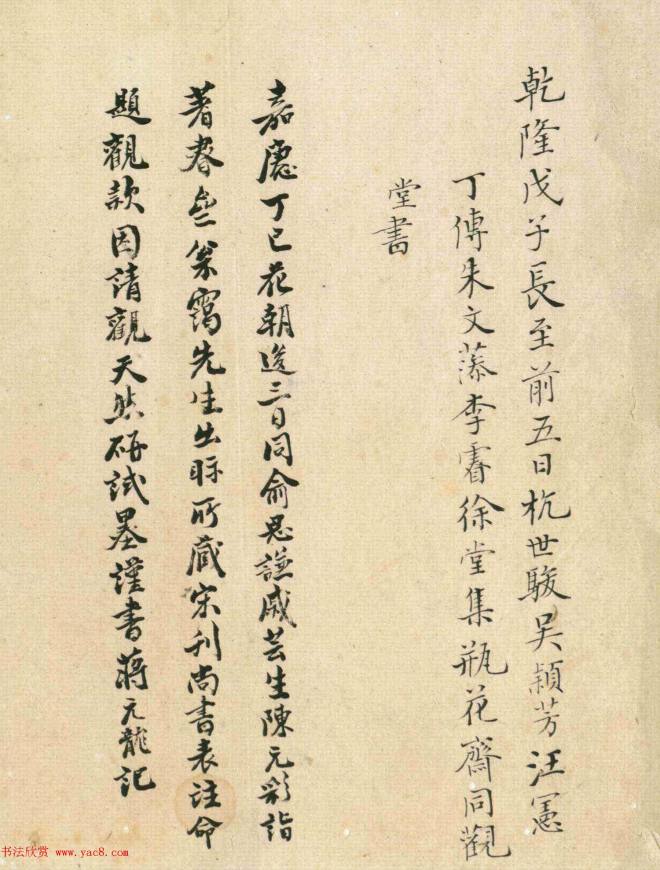 乾隆戊子長至前五日杭世駿吳穎芳汪憲
丁傳朱文藻李睿徐堂集瓶花齋同觀
堂書
嘉慶丁巳花朝後三日同俞思謙戚芸生陳元彩詣
著書齋槃靄先生出眎所藏宋刊尚書表注命
題觀款因請觀天然研試墨謹書蔣元龍記
书法欣赏 www.yac8.com